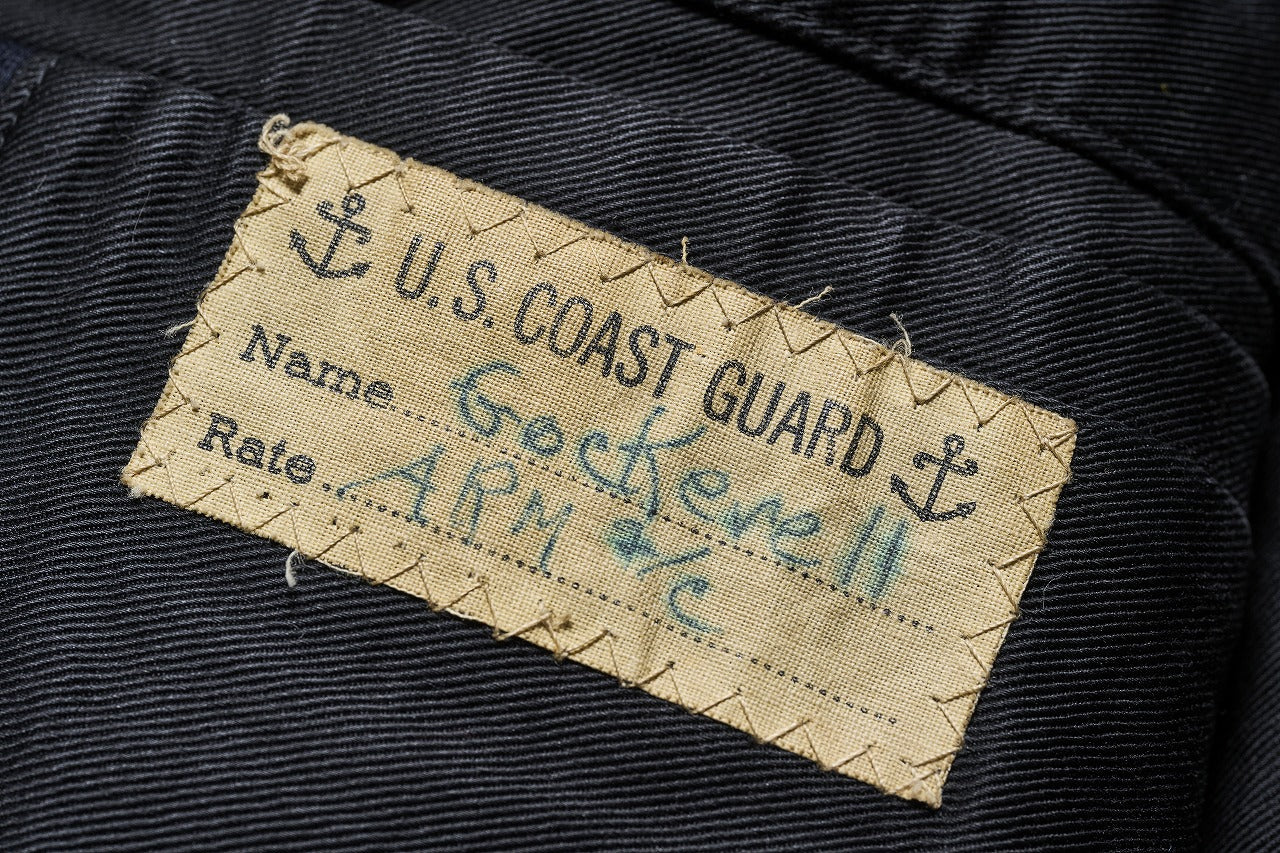 U.S. COAST GUARD
Name Gockerell
Rate ARM /C